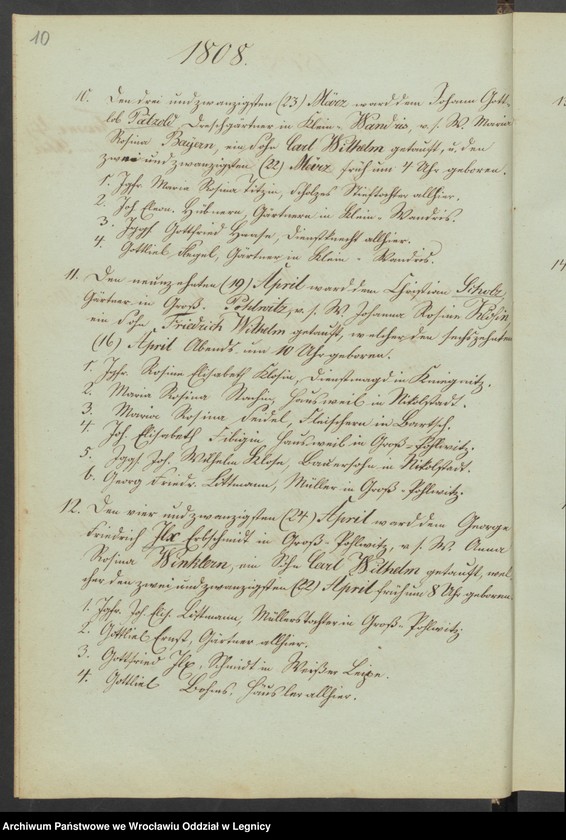 10
1808.
10. Den drei und zwanzigsten (23) März ward dem Johann Gott-
lob Pätzold Dreschgärtner in Klein-Wandris, v. s. W. Maria
Rosina Baÿern, ein Sohn Carl Wilhelm getauft, u. den
zwei und zwanzigsten (22) März früh um 4 Uhr geboren.
1. Jgfr. Maria Rosina Titzin, Scholzes Stieftochter allhier.
2. Joh. Eleon. Hübnern, Gärtnern in Klein-Wandris.
3. Jggs. Gottfried Hanse, Dienstknecht allhier.
4. Gottlieb Kegel, Gärtner in Klein-Wandris.
11. Den neunzehnten (19) April ward dem Christian Scholz,
Gärtner in Groß-Pohlwitz, v. s. W. Johanna Rosina
ein Sohn, Friedrich Wilhelm getauft, welcher den sechszehnten
(16) April Abends um 10 Uhr geboren.
1. Jgfr. Rosina Elisabeth Klosin, Dienstmagd in Kniegnitz.
2. Maria Rosina Hausweib in Nikolstadt.
3. Maria Rosina Seidel, Fleischern in Bartsch.
4. Joh. Elisabeth Hausweib in Groß-Pohlwitz.
5. Jggs. Joh. Wilhelm Klose, Bauersohn in Nikolstadt.
6. Georg Friedr. Littmann, Müller in Groß-Pohlwitz.
12. Den vier und zwanzigsten (24) April ward dem George
Friedrich Ilx Erbschmidt in Groß-Pohlwitz, v. s. W. Anna
Rosina Winklern, ein Sohn Carl Wilhelm getauft, wel-
cher den zwei und zwanzigsten (22) April früh um 8 Uhr geboren.
1. Jgfr. Joh. Elis. Littmann, Müllerstochter in Groß-Pohlwitz.
2. Gottlieb Ernst, Gärtner allhier.
3. Gottfried Ilx, Schmidt in Weißen Leipe.
4. Gottlieb Böhms, Häusler allhier.
Archiwum Państwowe we Wrocławiu Oddział w Legnicy